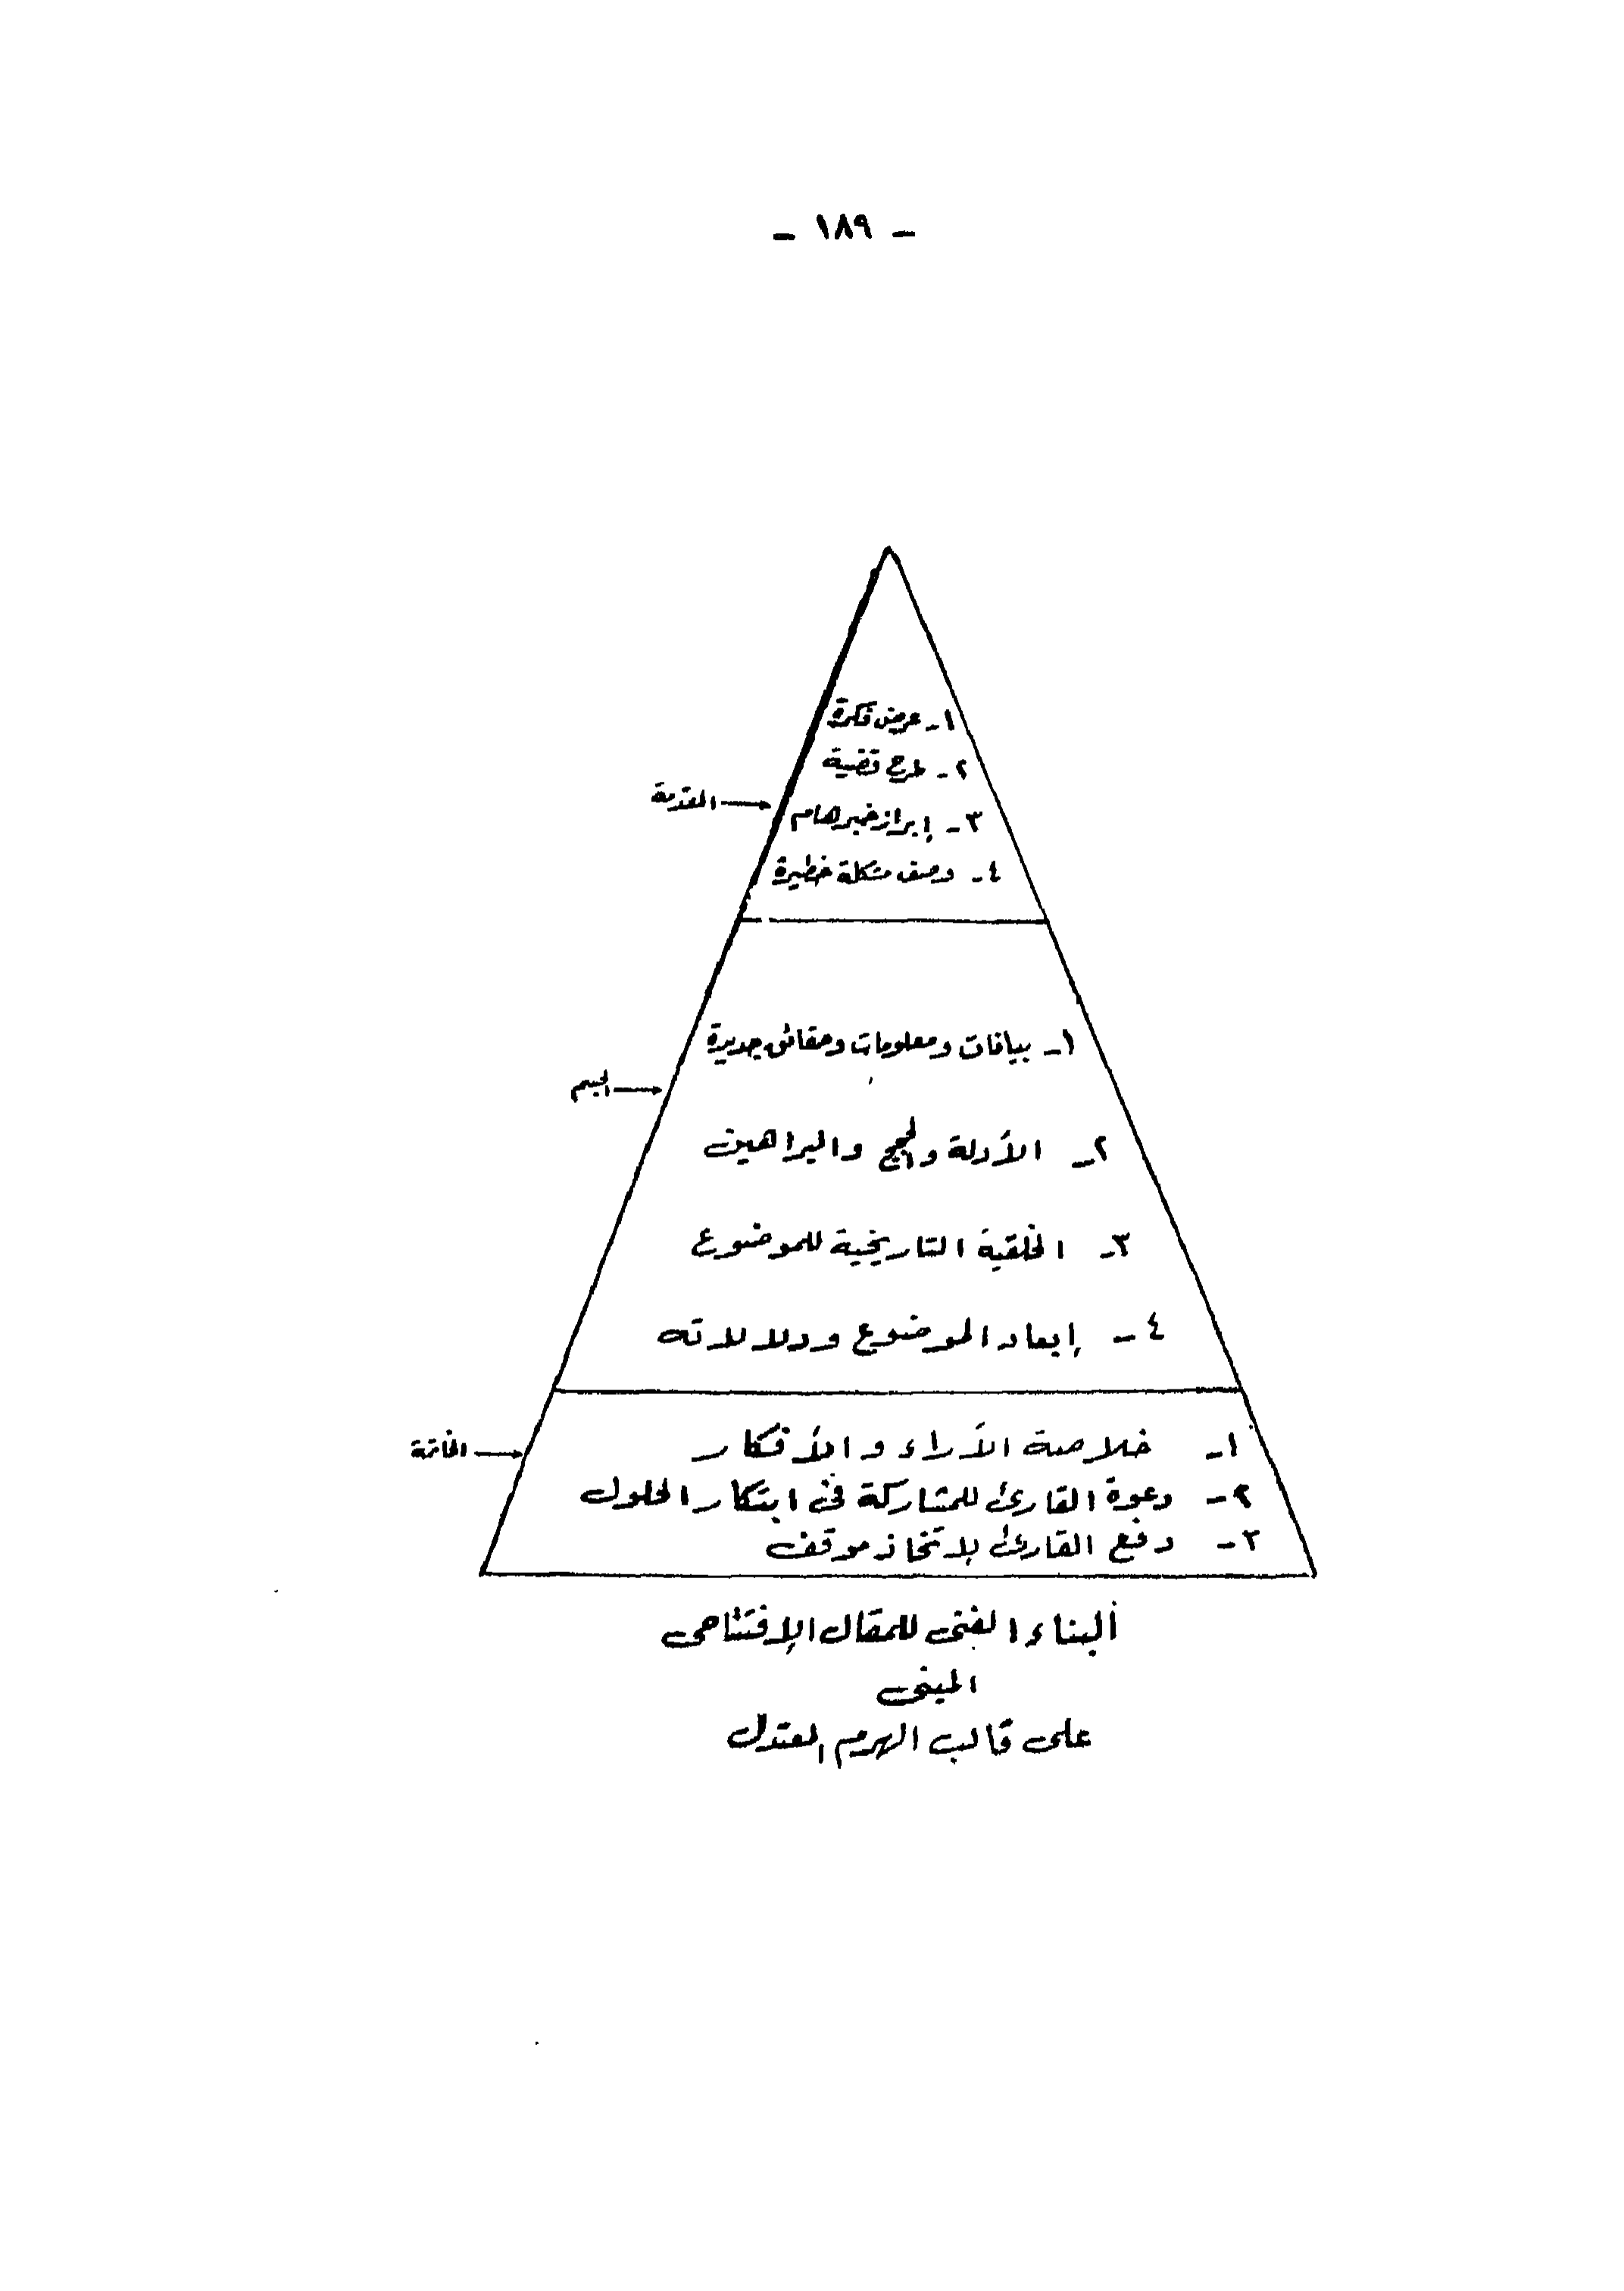 - ١٨٩ -
١- عرض فكرة
٢- طرح قضية
المقدمة
٣- إبراز خبر هام
٤- وصف مشكلة خطيرة
١- بيانات ومعلومات وحقائق جديدة
الجسم
٢- الأدلة والحجج والبراهين
٣- الخلفية التاريخية للموضوع
٤- إبعاد الموضوع ودلالاته
١- خلاصة الأراء والأفكار
الخاتمة
٢- دعوة القارئ للمشاركة فى ابتكار الحلول
٣- دفع القارئ لإتخاذ موقف
ألبناء الفنى للمقال الإفتتاحى
المبنى
على قالب الهرم المعتدل